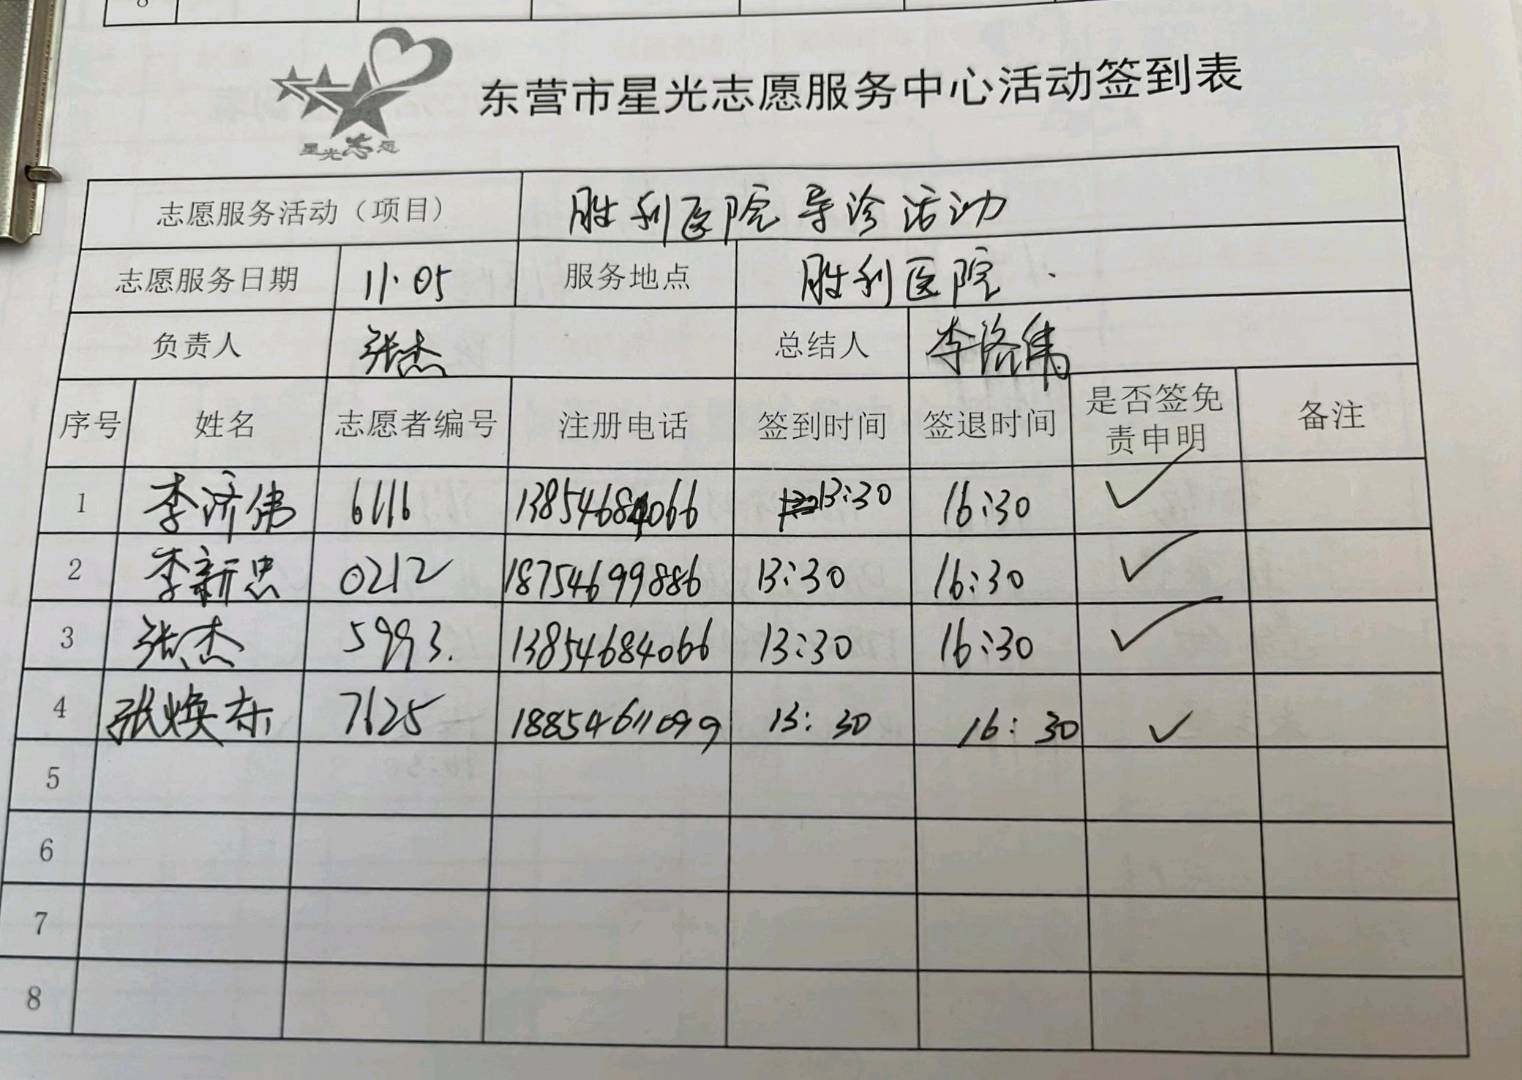 8
星光志愿
东营市星光志愿服务中心活动签到表
志愿服务活动（项目） 胜利医院导诊活动
志愿服务日期 11.05 服务地点 胜利医院
负责人 张杰 总结人 李济伟
序号 姓名 志愿者编号 注册电话 签到时间 签退时间 是否签免责申明 备注
1 李济伟 6116 13854684066 13:30 16:30 ✓
2 李新忠 0212 18754699886 13:30 16:30 ✓
3 张杰 5993. 13854684066 13:30 16:30 ✓
4 张焕东 7625 18854611099 13:30 16:30 ✓
5
6
7
8